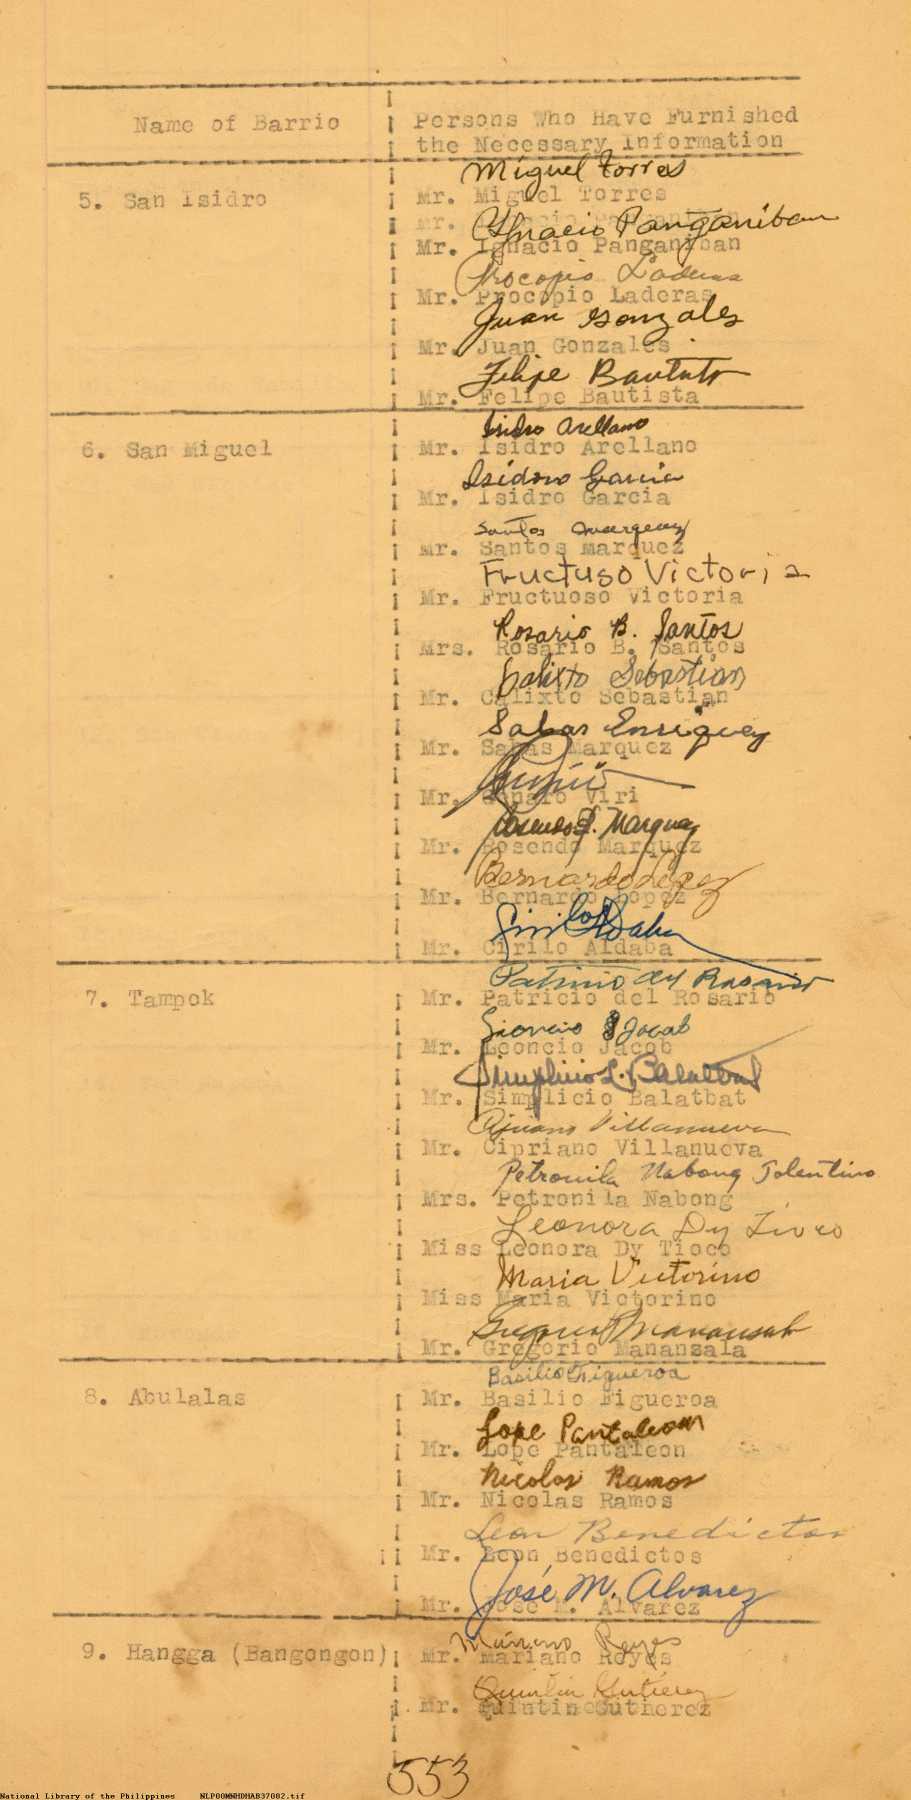 Name of Barrio
Persons Who Have Furnished
the Necessary Information
Miguel Torres
5. San Isidro
Mr. Miguel Torres
Ygnacio Panganiban
Mr. Ignacio Panganiban
Procopio Laderas
Mr. Procopio Laderas
Juan Gonzales
Mr. Juan Gonzales
Felipe Bautista
Mr. Felipe Bautista
Isidro Arellano
6. San Miguel
Mr. Isidro Arellano
Isidoro Garcia
Mr. Isidro Garcia
Santos Marquez
Mr. Santos Marquez
Fructuso Victoria
Mr. Fructuoso Victoria
Rosario B. Santos
Mrs. Rosario B. Santos
Calixto Sebastian
Mr. Calixto Sebastian
Sabas Enriquez
Mr. Sabas Marquez
Mr. Viri
Rosendo S. Marquez
Mr. Rosendo Marquez
Bernardo Lopez
Mr. Bernardo Lopez
Cirilo Aldaba
Mr. Cirilo Aldaba
Patricio del Rosario
7. Tampok
Mr. Patricio del Rosario
Leoncio Jacob
Mr. Leoncio Jacob
Simplicio L. Balatbat
Mr. Simplicio Balatbat
Cipriano Villanueva
Mr. Cipriano Villanueva
Petronila Nabong Tolentino
Mrs. Petronila Nabong
Leonora Dy Tioco
Miss Leonora Dy Tioco
Maria Victorino
Miss Maria Victorino
Gregorio Mananzala
Mr. Gregorio Mananzala
Basilio Figueroa
8. Abulalas
Mr. Basilio Figueroa
Lope Pantaleon
Mr. Lope Pantaleon
Nicolas Ramos
Mr. Nicolas Ramos
Leon Benedictos
Mr. Leon Benedictos
José M. Alvarez
Mr. Jose M. Alvarez
Mariano Reyes
9. Hangga (Bangongon)
Mr. Mariano Reyes
Quintin Gutierez
Mr. Quintin Gutherez
553
National Library of the Philippines NLP00MNHDHAB37082.tif